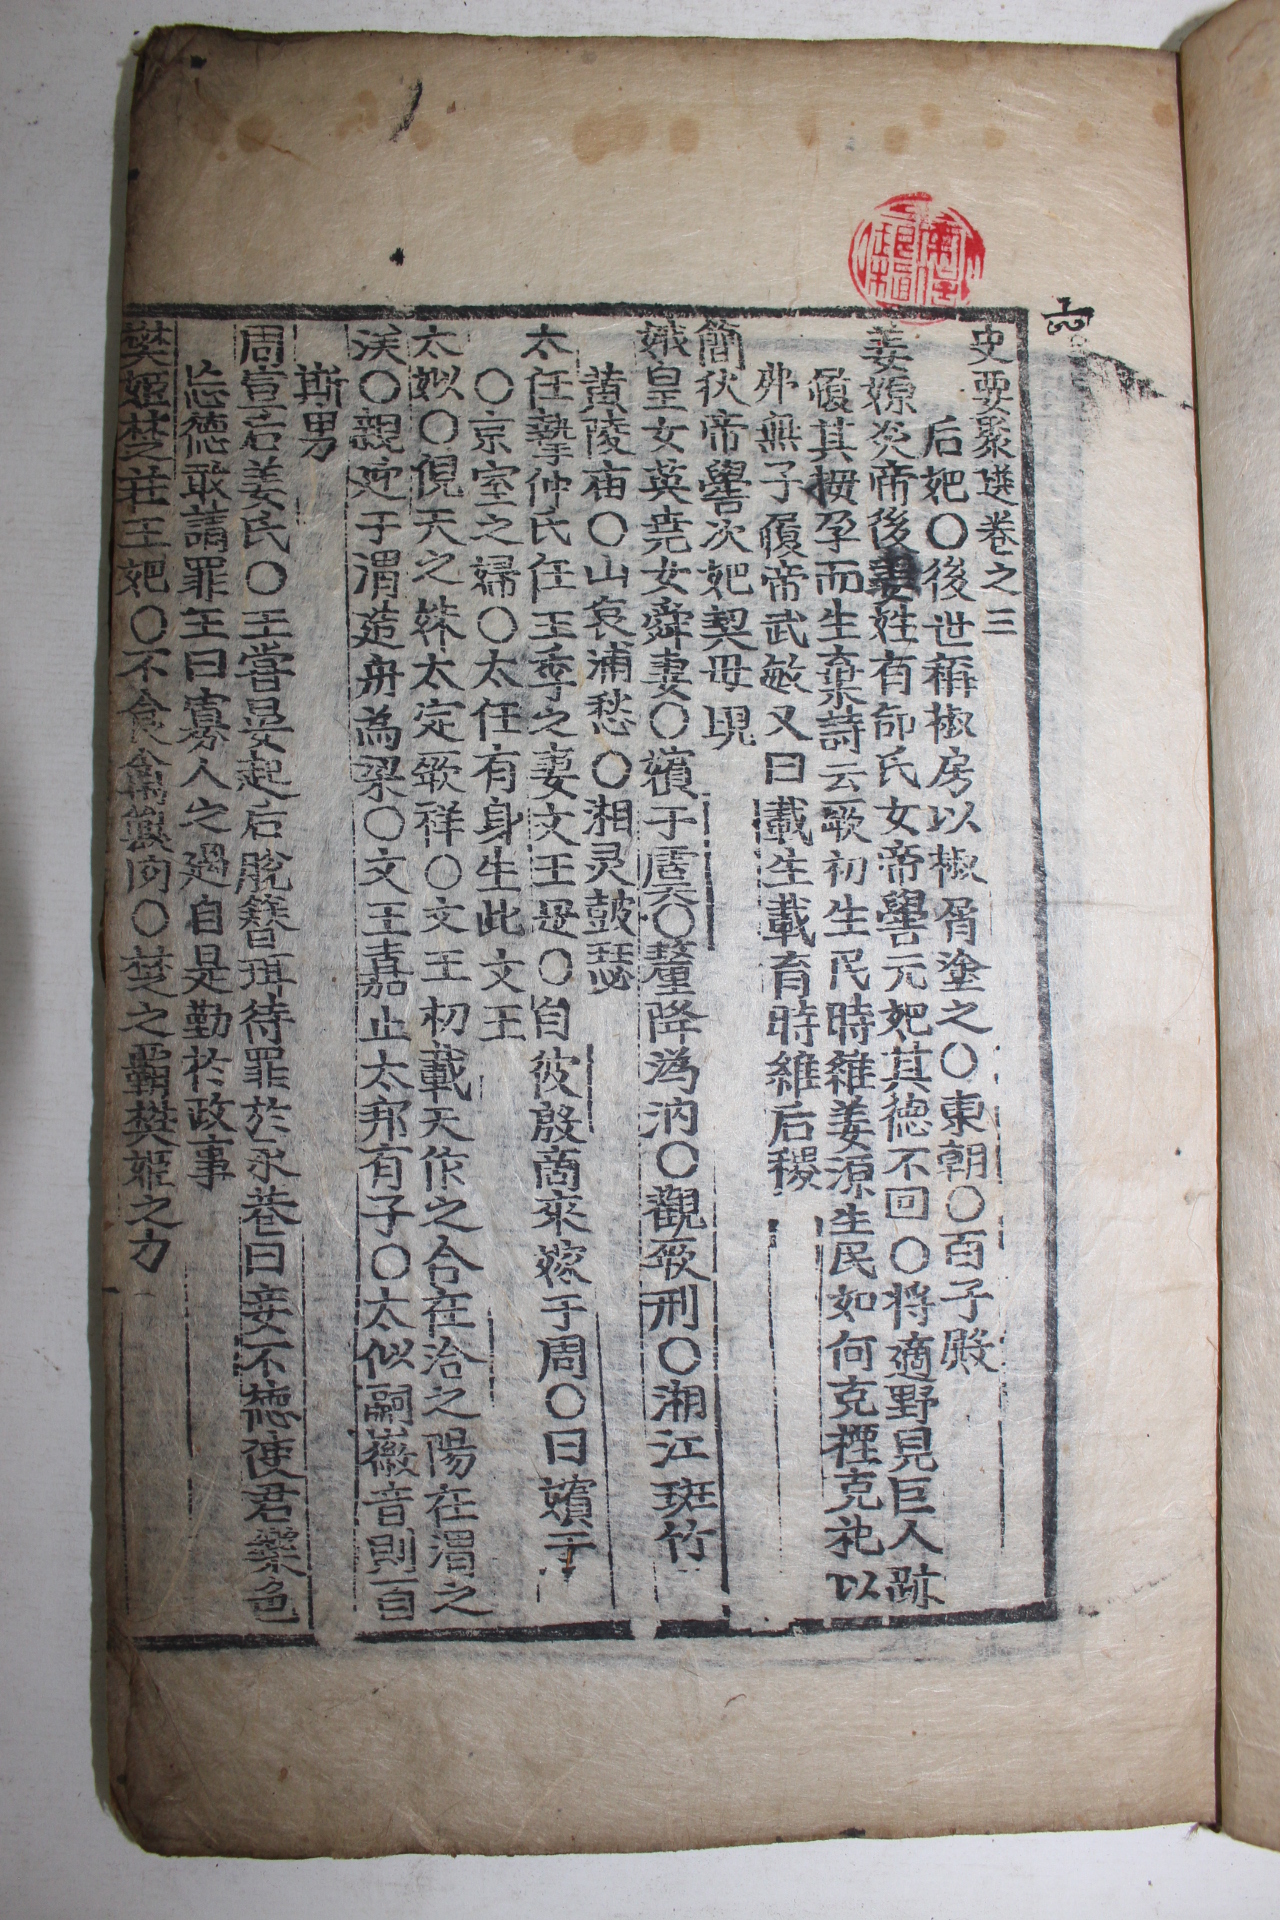 史要聚選卷之三
后妃〇後世稱椒房以椒屑塗之〇東朝〇百子殿
姜嫄炎帝後姜姓有邰氏女帝嚳元妃其德不回〇將適野見巨人跡
履其拇孕而生棄詩云厥初生民時維姜源生民如何克禋克祀以
弗無子履帝武敏又曰載生載育時維后稷
簡狄帝嚳次妃契母見
娥皇女英堯女舜妻〇嬪于虞〇釐降溈汭〇觀厥刑〇湘江斑竹
黃陵庙〇山哀浦愁〇湘灵鼓瑟
太任摯仲氏任王季之妻文王是〇自彼殷商來嫁于周〇曰嬪于
〇京室之婦〇太任有身生此文王
太姒〇俔天之妹太定厥祥〇文王初載天作之合在洽之陽在渭之
涘〇親迎于渭造舟為梁〇文王嘉止太邦有子〇太似嗣徽音則百
斯男
周宣后姜氏〇王嘗晏起后脫簪珥待罪於永巷曰妾不德使君樂色
忘德敢請罪王曰寡人之過自是勤於政事
樊姬楚莊王妃〇不食禽獸肉〇楚之霸樊姬之力